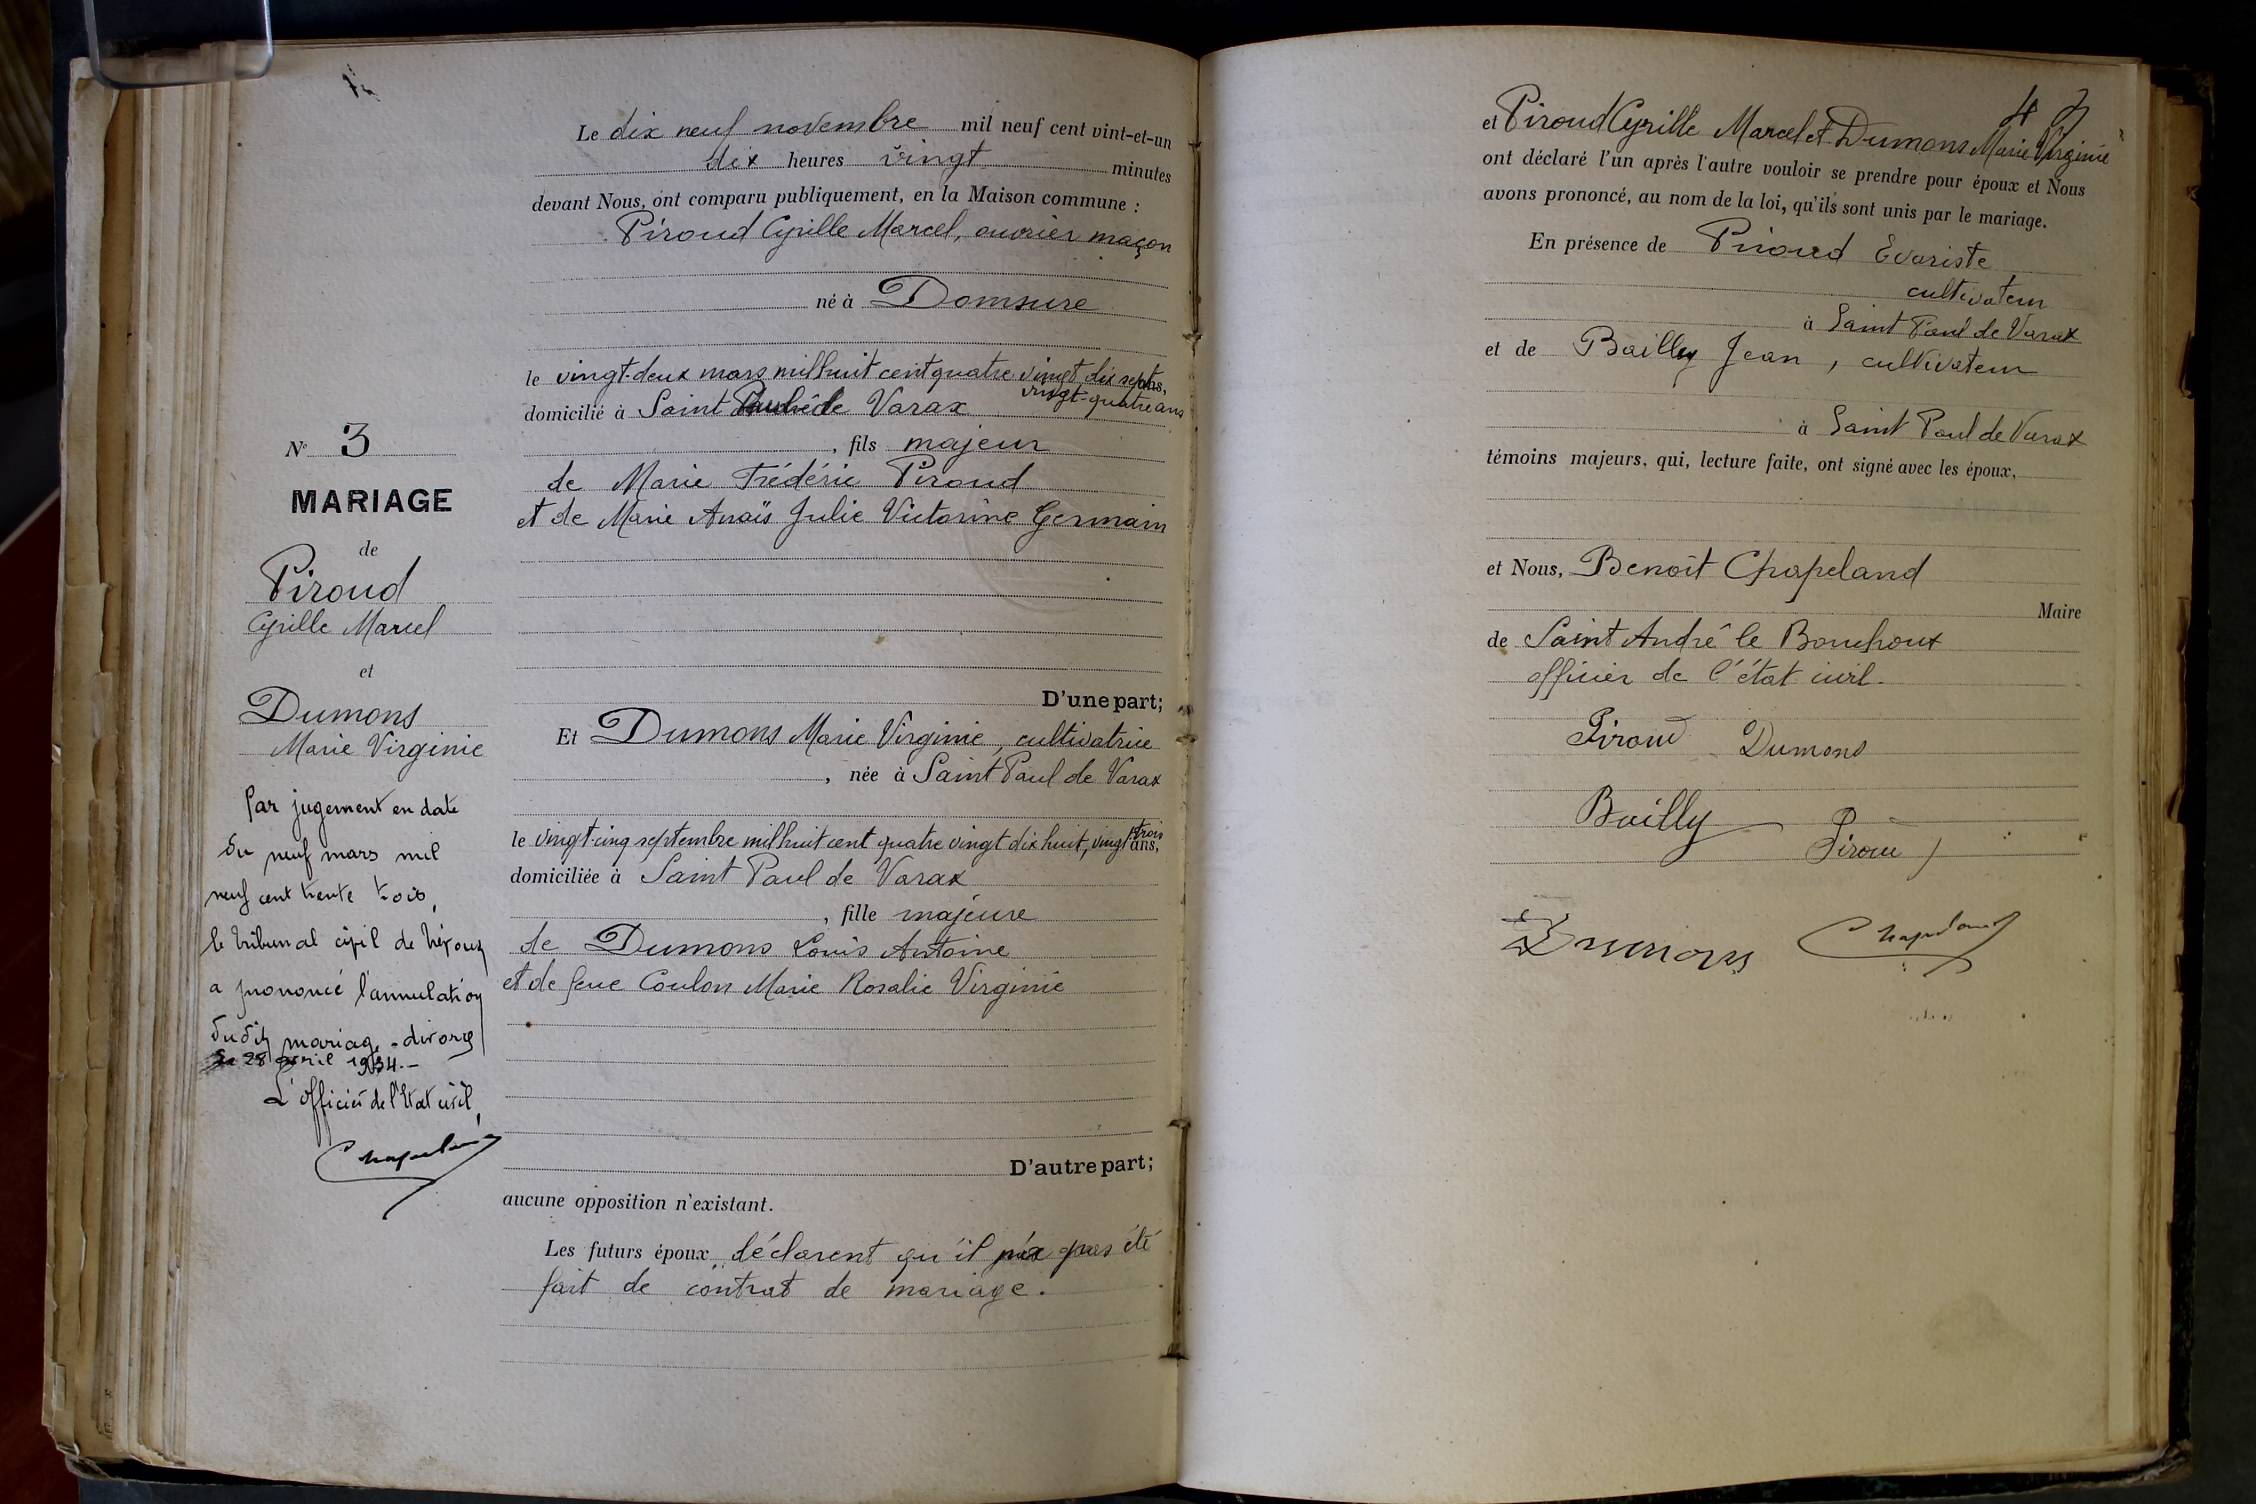 Le dix neuf novembre mil neuf cent vint-et-un
dix heures vingt minutes
devant Nous, ont comparu publiquement, en la Maison commune :
Piroud Cyrille Marcel, ouvrier maçon
né à Domsure
le vingt-deux mars mil huit cent quatre vingt dix sept,
vingt-quatre ans
domicilié à Saint de Varax
, fils majeur
de Marie Frédéric Piroud
et de Marie Anaïs Julie Victorine Germain
D'une part;
Et Dumons Marie Virginie, cultivatrice
, née à Saint Paul de Varax
le vingt-cinq septembre mil huit cent quatre vingt dix huit, vingt trois ans,
domiciliée à Saint Paul de Varax
, fille majeure
de Dumons Louis Antoine
et de feue Coulon Marie Rosalie Virginie
D'autre part;
aucune opposition n'existant.
Les futurs époux déclarent qu'il n'a pas été
fait de contrat de mariage.
N° 3
MARIAGE
de
Piroud
Cyrille Marcel
et
Dumons
Marie Virginie
Par jugement en date
du neuf mars mil
neuf cent trente trois,
le tribunal civil de Trévoux
a prononcé l'annulation
dudit mariag. - divorce
28 avril 1934.-
L'officier de l'Etat civil,
Chapeland
et Piroud Cyrille Marcel et Dumons Marie Virginie
ont déclaré l'un après l'autre vouloir se prendre pour époux et Nous
avons prononcé, au nom de la loi, qu'ils sont unis par le mariage.
En présence de Piroud Evariste
cultivateur
à Saint Paul de Varax
et de Bailly Jean, cultivateur
à Saint Paul de Varax
témoins majeurs, qui, lecture faite, ont signé avec les époux,
et Nous, Benoît Chapeland
Maire
de Saint André le Bouchoux
officier de l'état civil.
Piroud Dumons
Bailly Piroud
Dumons Chapeland